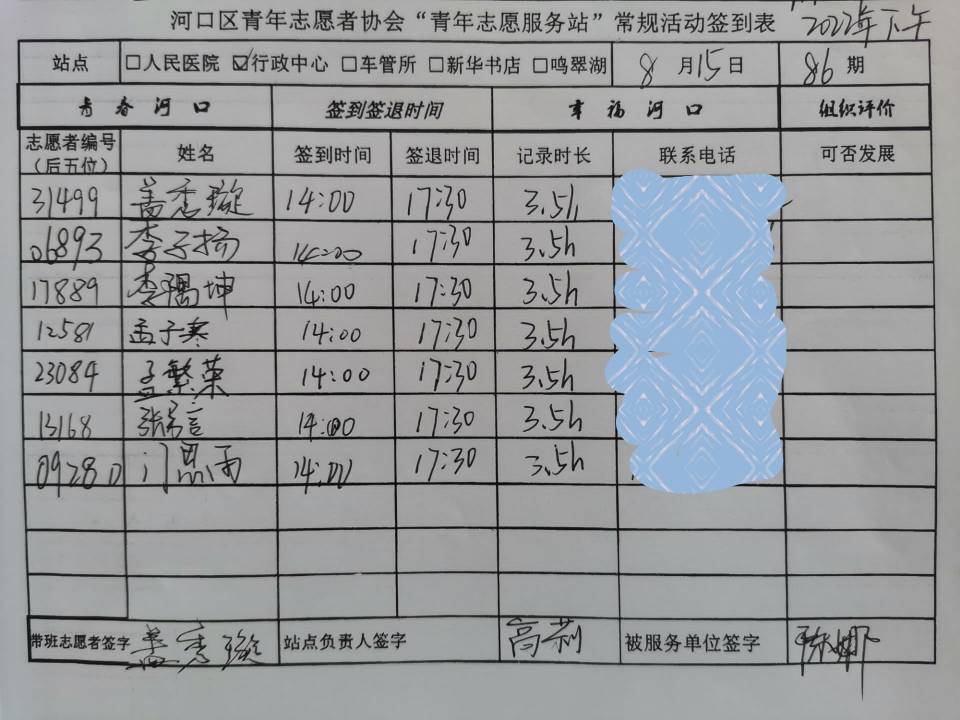 河口区青年志愿者协会“青年志愿服务站”常规活动签到表 2022年下午
站点 □人民医院 ☑行政中心 □车管所 □新华书店 □鸣翠湖 8月15日 86期
青春河口 签到签退时间 幸福河口 组织评价
志愿者编号（后五位） 姓名 签到时间 签退时间 记录时长 联系电话 可否发展
31499 盖秀璇 14:00 17:30 3.5h
06893 李子扬 14:00 17:30 3.5h
17889 李隅坤 14:00 17:30 3.5h
12581 孟子寒 14:00 17:30 3.5h
23084 孟繁荣 14:00 17:30 3.5h
13168 14:00 17:30 3.5h
09280 门思雨 14:00 17:30 3.5h
带班志愿者签字 盖秀璇 站点负责人签字 高莉 被服务单位签字 陈娜